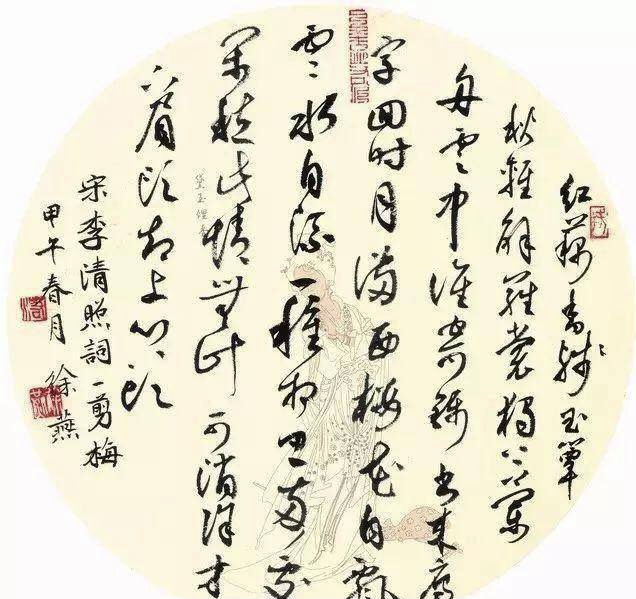 红藕香残玉簟
秋轻解羅裳獨上蘭
舟雲中誰寄錦書來雁
字回时月满西楼花自飘
零水自流一種相思两處
闲愁此情無計可消除才
下眉头却上心头
宋李清照詞一剪梅
甲午春月徐燕
黛玉